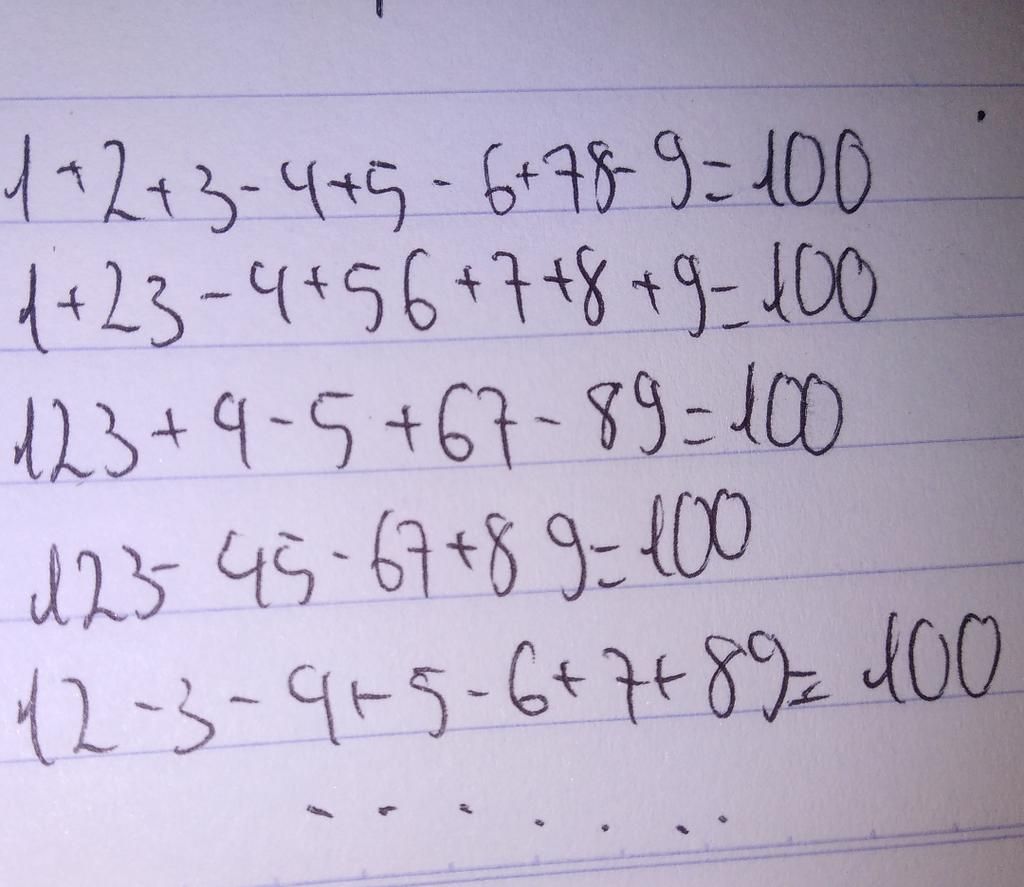 1+2+3-4+5-6+78-9=100
1+23-4+56+7+8+9=100
123+4-5+67-89=100
123-45-67+89=100
12-3-4+5-6+7+89=100
.......